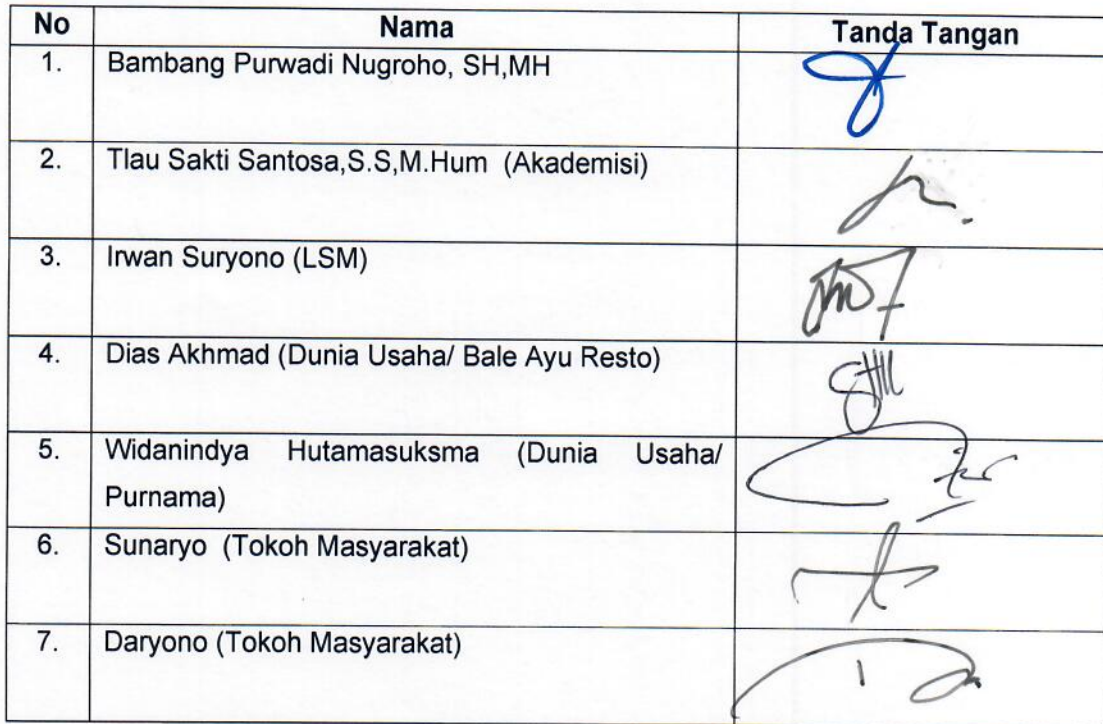 No Nama Tanda Tangan
1. Bambang Purwadi Nugroho, SH,MH
2. Tlau Sakti Santosa,S.S,M.Hum (Akademisi)
3. Irwan Suryono (LSM)
4. Dias Akhmad (Dunia Usaha/ Bale Ayu Resto)
5. Widanindya Hutamasuksma (Dunia Usaha/
Purnama)
6. Sunaryo (Tokoh Masyarakat)
7. Daryono (Tokoh Masyarakat)